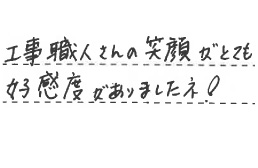 工事職人さんの笑顔がとても
好感度がありましたネ!